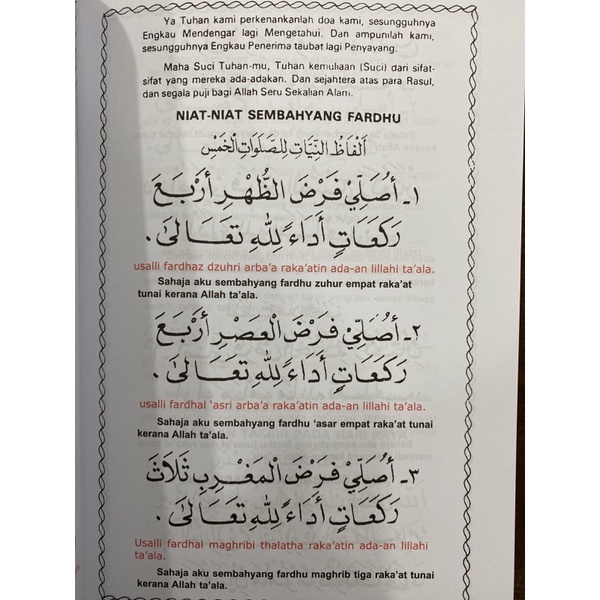 Ya Tuhan kami perkenankanlah doa kami, sesungguhnya
Engkau Mendengar lagi Mengetahui. Dan ampunilah kami,
sesungguhnya Engkau Penerima taubat lagi Penyayang.
Maha Suci Tuhan-mu, Tuhan kemuliaan (Suci) dari sifat-
sifat yang mereka ada-adakan. Dan sejahtera atas para Rasul,
dan segala puji bagi Allah Seru Sekalian Alam.
NIAT-NIAT SEMBAHYANG FARDHU
أَلْفَاظُ النِّيَّاتِ لِلصَّلَوَاتِ الْخَمْسِ
١ـ أُصَلِّيْ فَرْضَ الظُّهْرِ أَرْبَعَ
رَكَعَاتٍ أَدَاءً لِلّٰهِ تَعَالىٰ.
usalli fardhaz dzuhri arba’a raka’atin ada-an lillahi ta’ala.
Sahaja aku sembahyang fardhu zuhur empat raka’at
tunai kerana Allah ta’ala.
٢ـ أُصَلِّيْ فَرْضَ الْعَصْرِ أَرْبَعَ
رَكَعَاتٍ أَدَاءً لِلّٰهِ تَعَالىٰ.
usalli fardhal ‘asri arba’a raka’atin ada-an lillahi ta’ala.
Sahaja aku sembahyang fardhu ‘asar empat raka’at tunai
kerana Allah ta’ala.
٣ـ أُصَلِّيْ فَرْضَ الْمَغْرِبِ ثَلَاثَ
رَكَعَاتٍ أَدَاءً لِلّٰهِ تَعَالىٰ.
Usalli fardhal maghribi thalatha raka’atin ada-an lillahi
ta’ala.
Sahaja aku sembahyang fardhu maghrib tiga raka’at tunai
kerana Allah ta’ala.